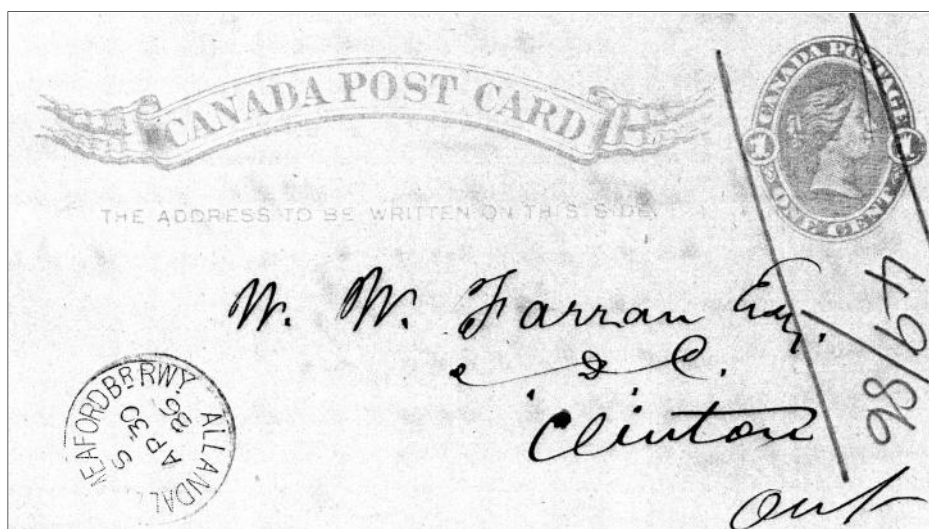 CANADA POST CARD
CANADA POSTAGE
1 1
ONE CENT
THE ADDRESS TO BE WRITTEN ON THIS SIDE.
W. W. Farran Esq.
D. C.
Clinton
Ont
98/67
MEAFORD BR RWY
ALLANDAL
S
AP 30
86